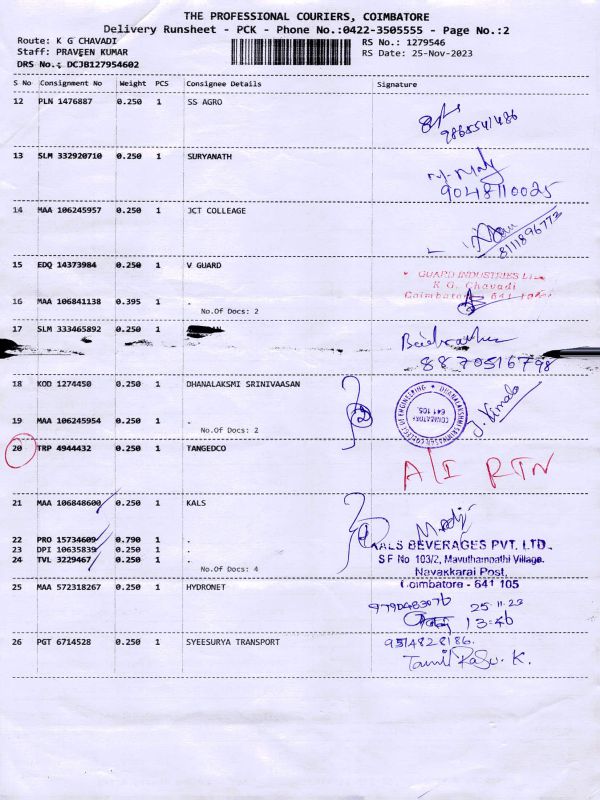 THE PROFESSIONAL COURIERS, COIMBATORE
Delivery Runsheet - PCK - Phone No.:0422-3505555 - Page No.:2
Route: K G CHAVADI
RS No.: 1279546
Staff: PRAVEEN KUMAR
RS Date: 25-Nov-2023
DRS No.: DCJB127954602
S No Consignment No Weight PCS Consignee Details Signature
12 PLN 1476887 0.250 1 SS AGRO
9865541486
13 SLM 332920710 0.250 1 SURYANATH
9048110025
14 MAA 106245957 0.250 1 JCT COLLEAGE
8111896773
15 EDQ 14373984 0.250 1 V GUARD
GUARD INDUSTRIES
K G. Chavadi
Coimbatore - 641
16 MAA 106841138 0.395 1 .
No.Of Docs: 2
17 SLM 333465892 0.250 1
8870516798
18 KOD 1274450 0.250 1 DHANALAKSMI SRINIVAASAN
DHANALAKSHMI SRINIVASAN COLLEGE OF ENGINEERING
COIMBATORE
641 105.
2
19 MAA 106245954 0.250 1 .
No.Of Docs: 2
20 TRP 4944432 0.250 1 TANGEDCO
A/I RTN
21 MAA 106848600 0.250 1 KALS
22 PRO 15734609 0.790 1 .
23 DPI 10635839 0.250 1 .
24 TVL 3229467 0.250 1 .
No.Of Docs: 4
KALS BEVERAGES PVT. LTD.
S F No 103/2, Mavuthampathi Village.
Navakkarai Post,
Coimbatore - 641 105
25 MAA 572318267 0.250 1 HYDRONET
9790483076 25.11.23
13:46
26 PGT 6714528 0.250 1 SYEESURYA TRANSPORT
9514828186.
K.